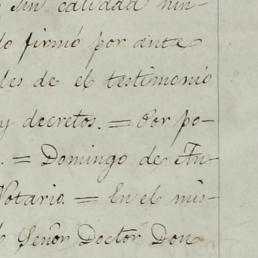 sin calidad nin-
lo firmó por ante
les de el testimonio
y decretos. = Por po-
. = Domingo de An-
Notario. = En el mis-
Señor Doctor Don